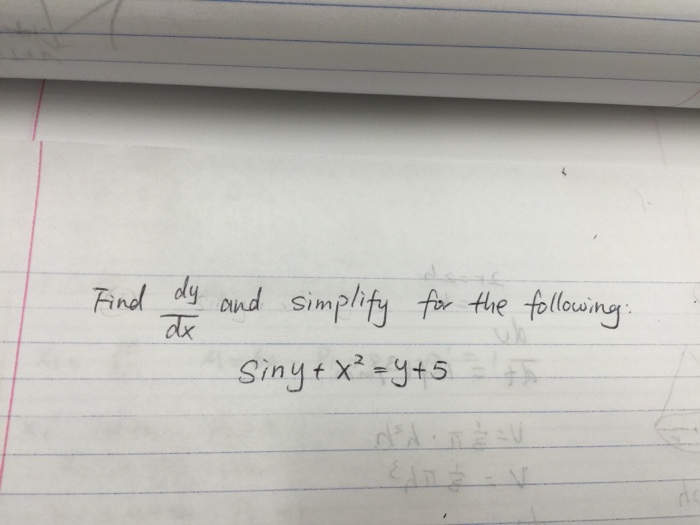 Find dy/dx and simplify for the following:
Sin y + x² = y + 5